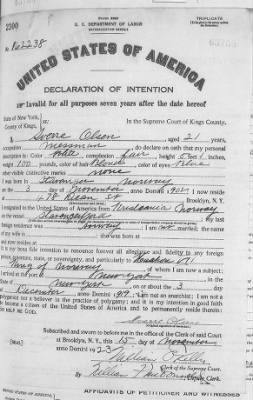 Form 2203
U. S. DEPARTMENT OF LABOR
NATURALIZATION SERVICE
TRIPLICATE
2300
No. 162238
UNITED STATES OF AMERICA
DECLARATION OF INTENTION
Invalid for all purposes seven years after the date hereof
State of New York,
County of Kings, ss:
In the Supreme Court of Kings County.
I, Sverre Olsen, aged 21 years,
occupation messman, do declare on oath that my personal
description is: Color white, complexion fair, height feet inches,
weight pounds, color of hair Blond, color of eyes Blue
other visible distinctive marks none
I was born in Stavanger Norway
on the 3 day of November, anno Domini 1902; I now reside
at 78 St., Brooklyn, N. Y.
I emigrated to the United States of America from Norway
on the vessel Stavangerfjord
residence was Norway; I am not married; the name
of my wife is; she was born at
and now resides at
It is my bona fide intention to renounce forever all allegiance and fidelity to any foreign
prince, potentate, state, or sovereignty, and particularly to Haakon VII
King of Norway, of whom I am now a subject;
I arrived at the port of New York, in the
State of New York, on or about the 3 day
of December, anno Domini; I am not an anarchist; I am not a
polygamist nor a believer in the practice of polygamy; and it is my intention in good faith
to become a citizen of the United States of America and to permanently reside therein:
SO HELP ME GOD.
Sverre Olsen
Subscribed and sworn to before me in the office of the Clerk of said Court
at Brooklyn, N. Y., this 15 day of November
anno Domini 1923
[SEAL]
William Kelly
Clerk of the Supreme Court.
By
Clerk.
AFFIDAVITS OF PETITIONER AND WITNESSES